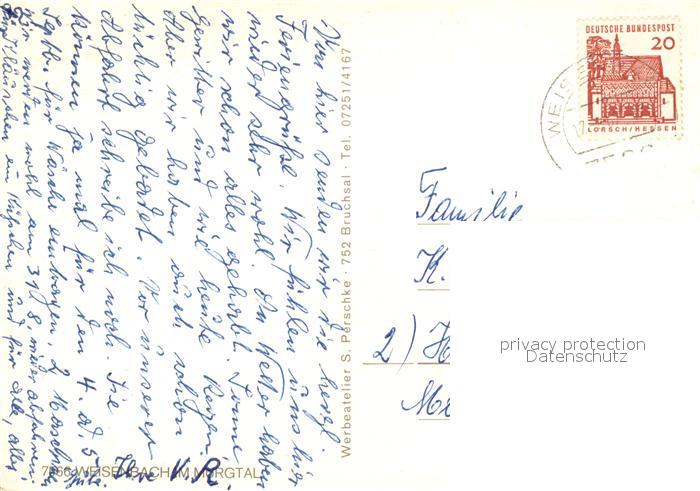 Von hier senden wir die herzl.
Feriengrüße. Wir fühlen uns hier
wieder sehr wohl. An Wetter haben
wir schon alles gehabt. Sonne,
Gewitter und wie heute Regen.
Aber wir haben auch schon
tüchtig gebadet. Vor unserer
Abfahrt schreibe ich noch. Sie
können ja mal für den 4. o. 5.
Septb. für Wäsche eintragen, 2 Maschinen
wir werden wohl am 31.8. wieder abfahren.
ein Küßchen und für alle, alles
Ihre K. R.
7566 WEISENBACH AM MURGTAL
Werbeatelier S. Perschke · 752 Bruchsal · Tel. 07251/4167
DEUTSCHE BUNDESPOST
20
LORSCH/HESSEN
WEISE
Familie
K.
2) H
privacy protection
Datenschutz